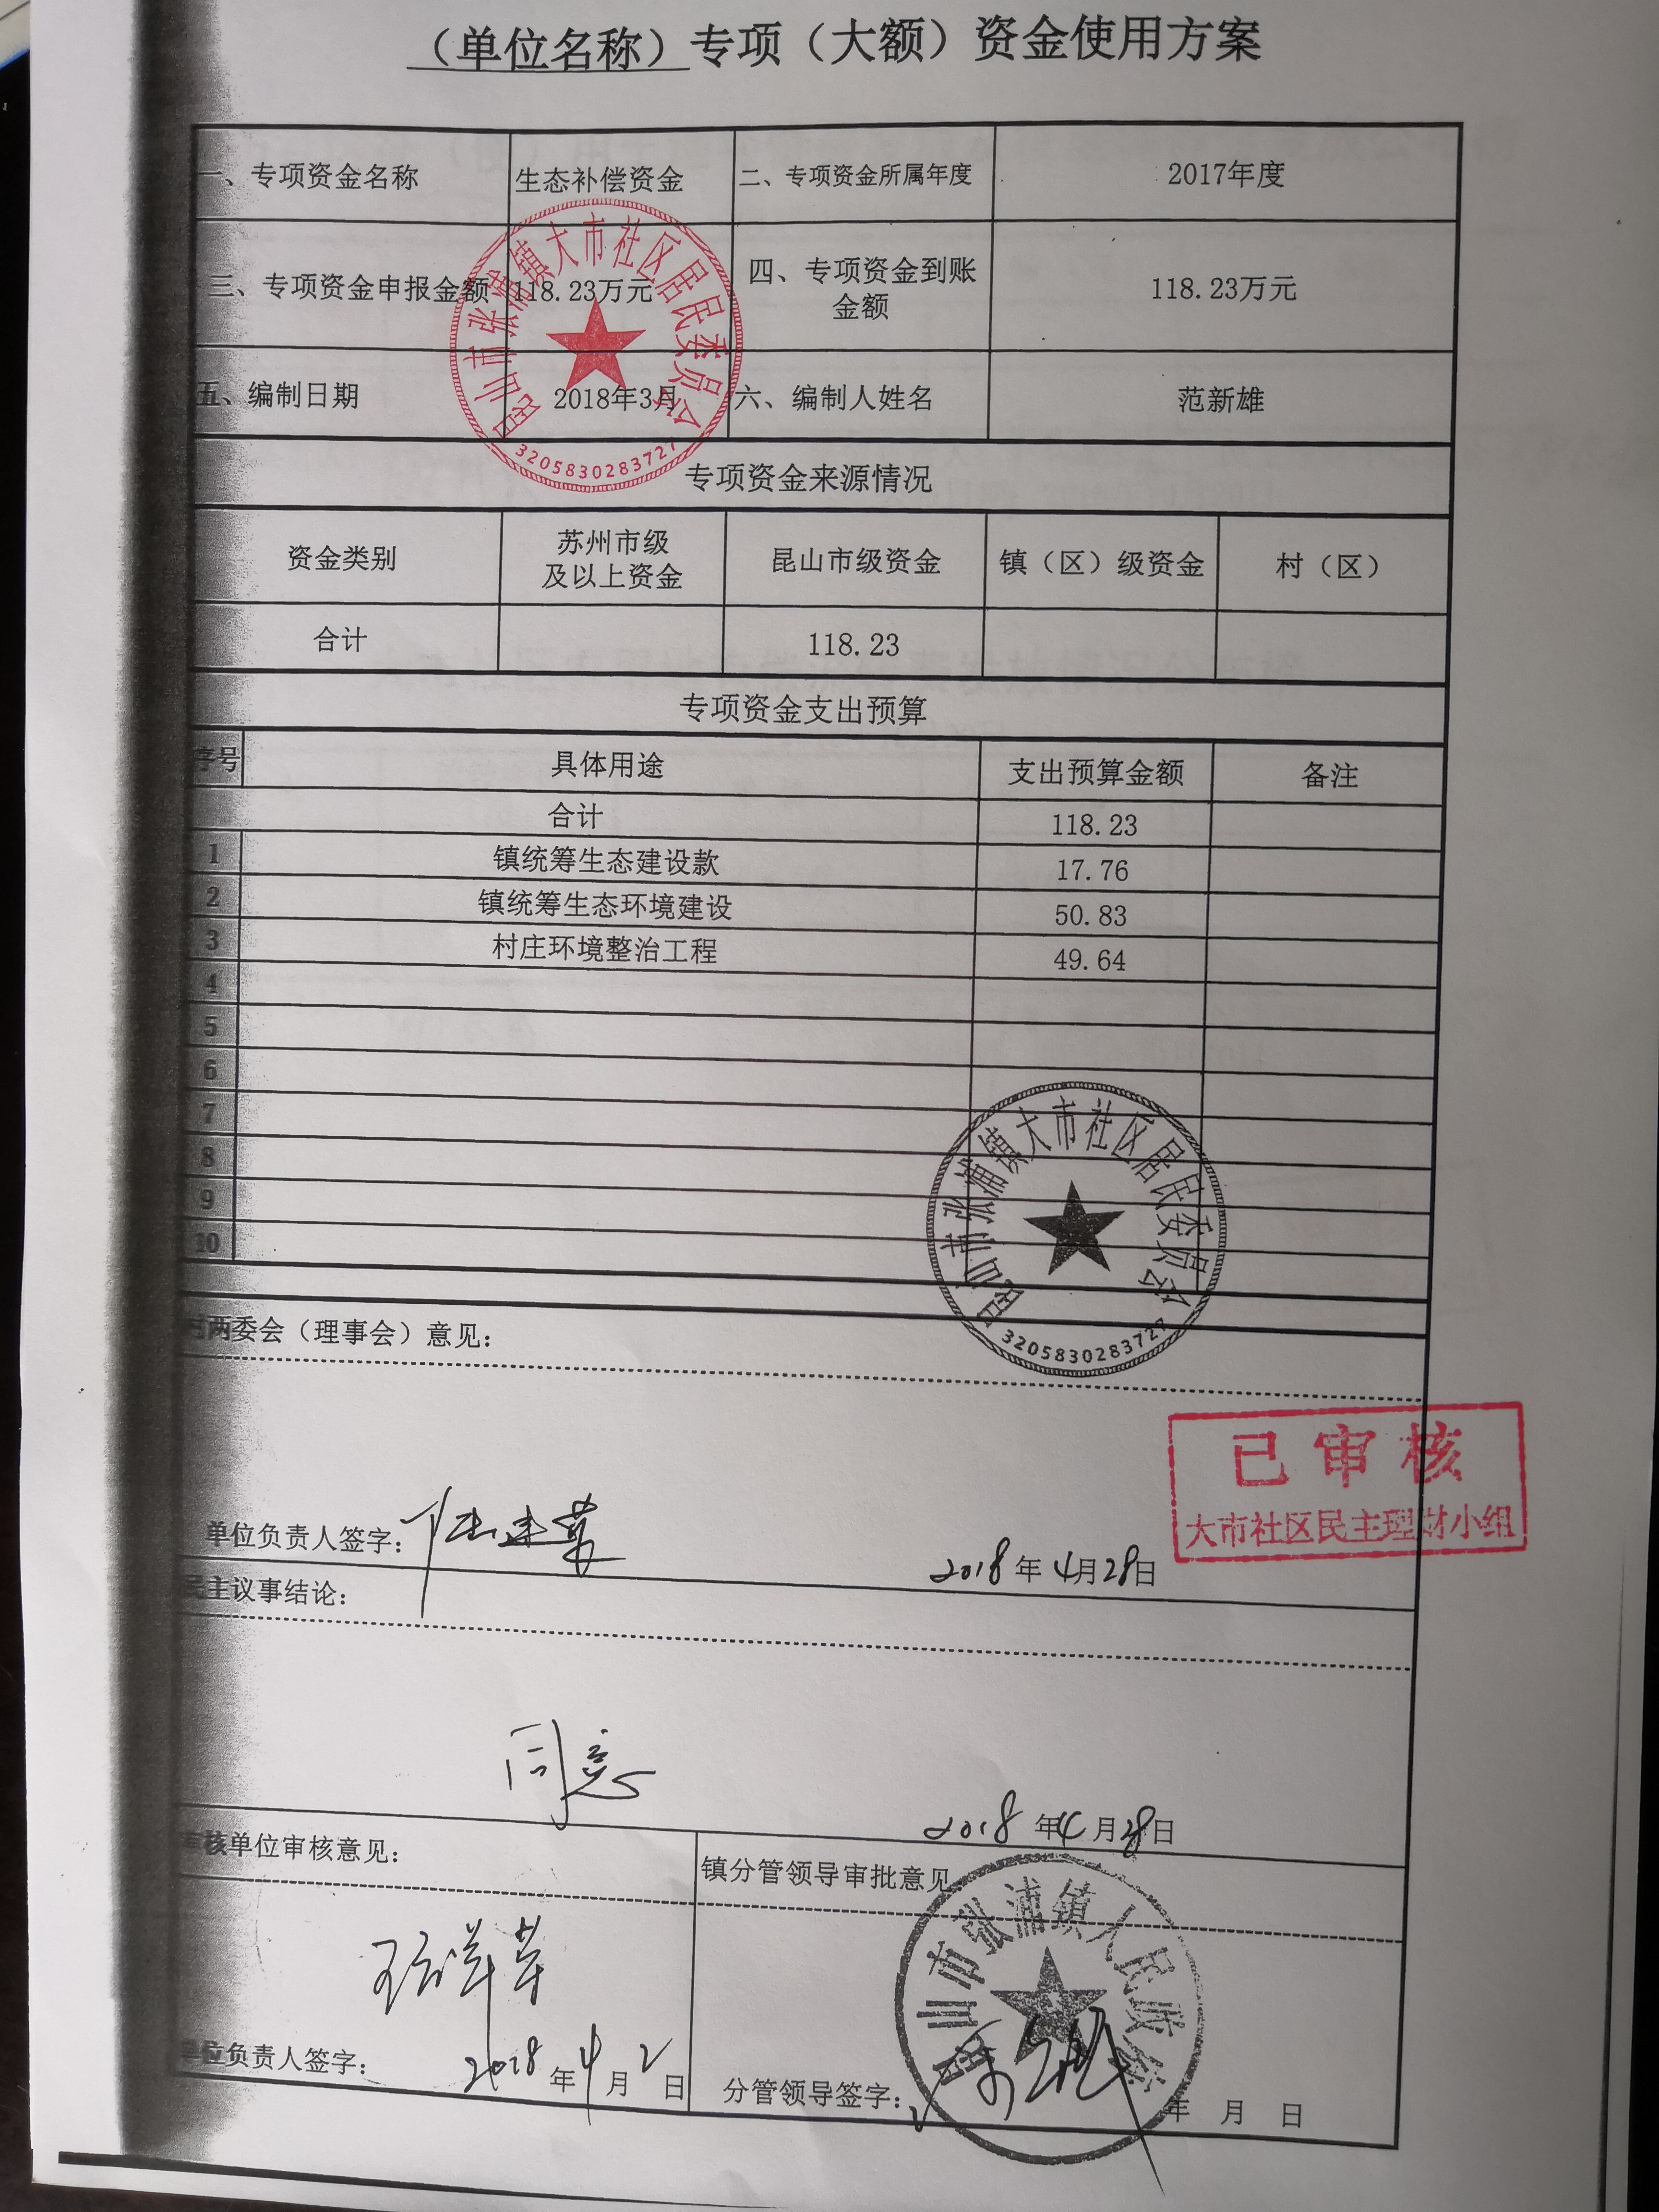 （单位名称）专项（大额）资金使用方案
一、专项资金名称 生态补偿资金 二、专项资金所属年度 2017年度
三、专项资金申报金额 118.23万元 四、专项资金到账金额 118.23万元
五、编制日期 2018年3月 六、编制人姓名 范新雄
昆山市张浦镇大市社区居民委员会
3205830283727
专项资金来源情况
资金类别 苏州市级及以上资金 昆山市级资金 镇（区）级资金 村（区）
合计 118.23
专项资金支出预算
序号 具体用途 支出预算金额 备注
合计 118.23
1 镇统筹生态建设款 17.76
2 镇统筹生态环境建设 50.83
3 村庄环境整治工程 49.64
4
5
6
7
8
9
10
昆山市张浦镇大市社区居民委员会
3205830283727
村两委会（理事会）意见：
已审核
大市社区民主理财小组
单位负责人签字：
2018年4月28日
民主议事结论：
同意
2018年4月28日
审核单位审核意见：
镇分管领导审批意见
昆山市张浦镇人民政府
单位负责人签字： 2018年4月2日
分管领导签字： 年 月 日